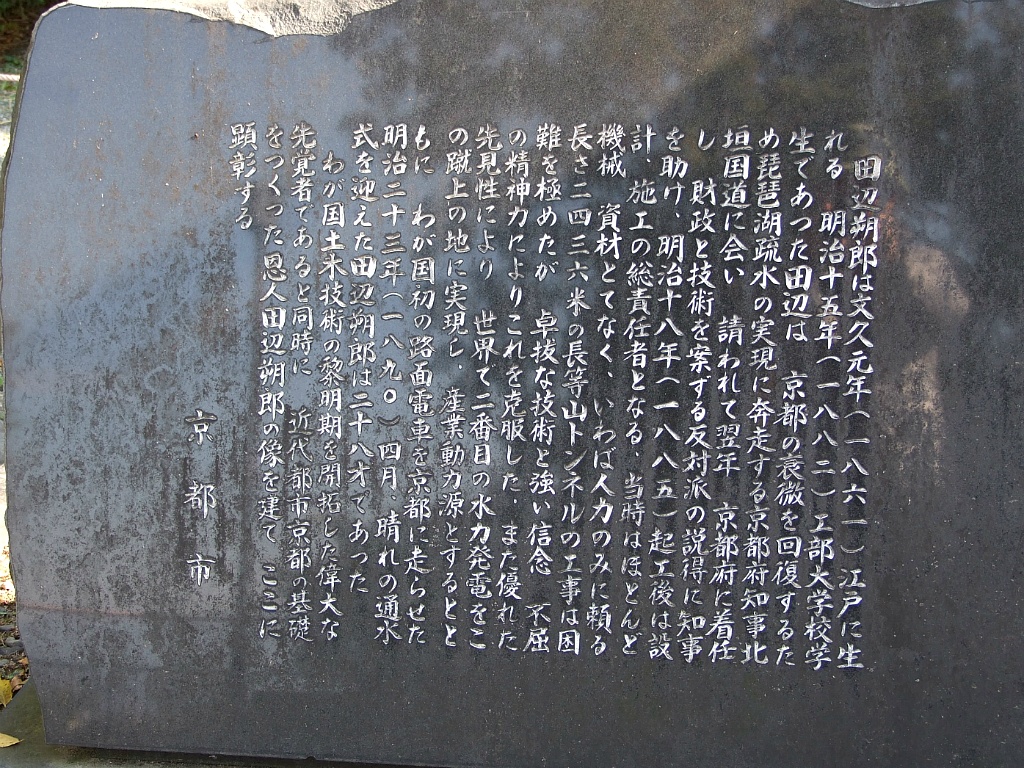 田辺朔郎は文久元年(一八六一)江戸に生
れる 明治十五年(一八八二)工部大学校学
生であつた田辺は 京都の衰微を回復するた
め琵琶湖疏水の実現に奔走する京都府知事北
垣国道に会い 請われて翌年 京都府に着任
し 財政と技術を案ずる反対派の説得に知事
を助け、明治十八年(一八八五)起工後は設
計、施工の総責任者となる、当時はほとんど
機械 資材とてなく、いわば人力のみに頼る
長さ二四三六米の長等山トンネルの工事は困
難を極めたが 卓抜な技術と強い信念 不屈
の精神力によりこれを克服した、また優れた
先見性により 世界で二番目の水力発電をこ
の蹴上の地に実現し、産業動力源とするとと
もに わが国初の路面電車を京都に走らせた
明治二十三年(一八九〇)四月、晴れの通水
式を迎えた田辺朔郎は二十八才であつた
わが国土木技術の黎明期を開拓した偉大な
先覚者であると同時に 近代都市京都の基礎
をつくつた恩人田辺朔郎の像を建て ここに
顕彰する
京都市